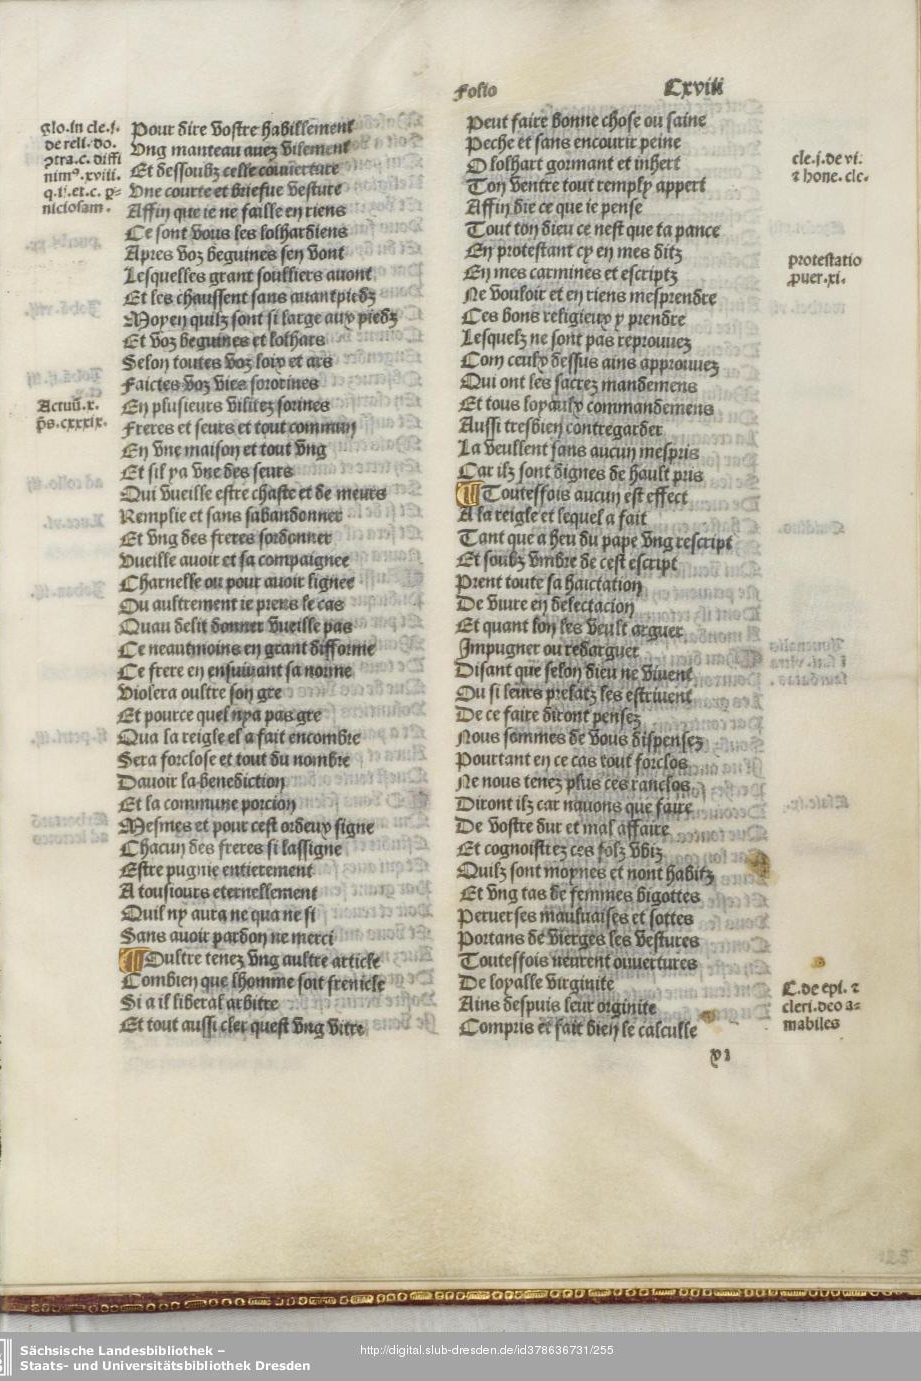 Folio Cxviii
glo. in cle. i.
de reli. do.
ↄtra. c. diffi
nimꝰ. xviii.
q. ii. et. c. ꝑ-
niciosam.
Pour dire vostre habillement
Vng manteau auez vilement
Et dessoubz celle couuerture
Vne courte et briefue vesture
Affin que ie ne faille en riens
Ce sont vous les lolhardiens
Apres voz beguines sen vont
Lesquelles grant soulliers auont
Et les chaussent sans auantpiedz
Moyen quilz sont si large aux piedz
Et voz beguines et lolhars
Selon toutes voz loix et ars
Faictes voz vies sororines
Actuū. x.
p̄s. cxxxix.
En plusieurs vilitez sorines
Freres et seurs et tout commun
En vne maison et tout vng
Et sil ya vne des seurs
Qui vueille estre chaste et de meurs
Remplie et sans sabandonner
Et vng des freres sordonner
Vueille auoir et sa compaignee
Charnelle ou pour auoir lignee
Ou aultrement ie prens le cas
Quau delit donner vueille pas
Ce neautmoins en grant difforme
Ce frere en ensuiuant sa norme
Violera oultre son gre
Et pource quel nya pas gre
Qua la reigle el a fait encombre
Sera forclose et tout du nombre
Dauoir la benediction
Et la commune porcion
Mesmes et pour cest ordeux signe
Chacun des freres si lassigne
Estre pugnie entierement
A tousiours eternellement
Quil ny aura ne qua ne si
Sans auoir pardon ne merci
Oultre tenez vng aultre article
Combien que lhomme soit frenicle
Si a il liberal arbitre
Et tout aussi cler quest vng vitre
Peut faire bonne chose ou saine
Peche et sans encourir peine
O lolhart gormant et inhert
Ton ventre tout remply appert
cle. i. de vi.
⁊ hone. cle.
Affin die ce que ie pense
Tout ton dieu ce nest que ta pance
En protestant cy en mes ditz
En mes carmines et escriptz
protestatio
ꝓuer. xi.
Ne vouloir et en riens mesprendre
Ces bons religieux y prendre
Lesquelz ne sont pas reprouuez
Com ceulx dessus ains approuuez
Qui ont les sacrez mandemens
Et tous loyaulx commandemens
Aussi tresbien contregarder
La veullent sans aucun mespris
Car ilz sont dignes de hault pris
Toutesfois aucun est effect
A la reigle et lequel a fait
Tant que a heu du pape vng rescript
Et soubz vmbre de cest escript
Prent toute sa hairtation
De viure en delectacion
Et quant lon les veult arguer
Impugner ou redarguer
Disant que selon dieu ne viuent
Ou si leurs prelatz les estriuent
De ce faire diront pensez
Nous sommes de vous dispensez
Pourtant en ce cas tout forclos
Ne nous tenez plus ces ranclos
Diront ilz car nauons que faire
De vostre dur et mal affaire
Et cognoistrez ces folz vbiz
Quilz sont moynes et nont habitz
Et vng tas de femmes bigottes
Peruerses mauluaises et sottes
Portans de vierges les vestures
Toutesfois neurent ouuertures
De loyalle virginite
Ains despuis leur orginite
Compris et fait bien le calculle
C. de epī. ⁊
cleri. deo a-
mabiles
Sächsische Landesbibliothek –
Staats- und Universitätsbibliothek Dresden
http://digital.slub-dresden.de/id378636731/255